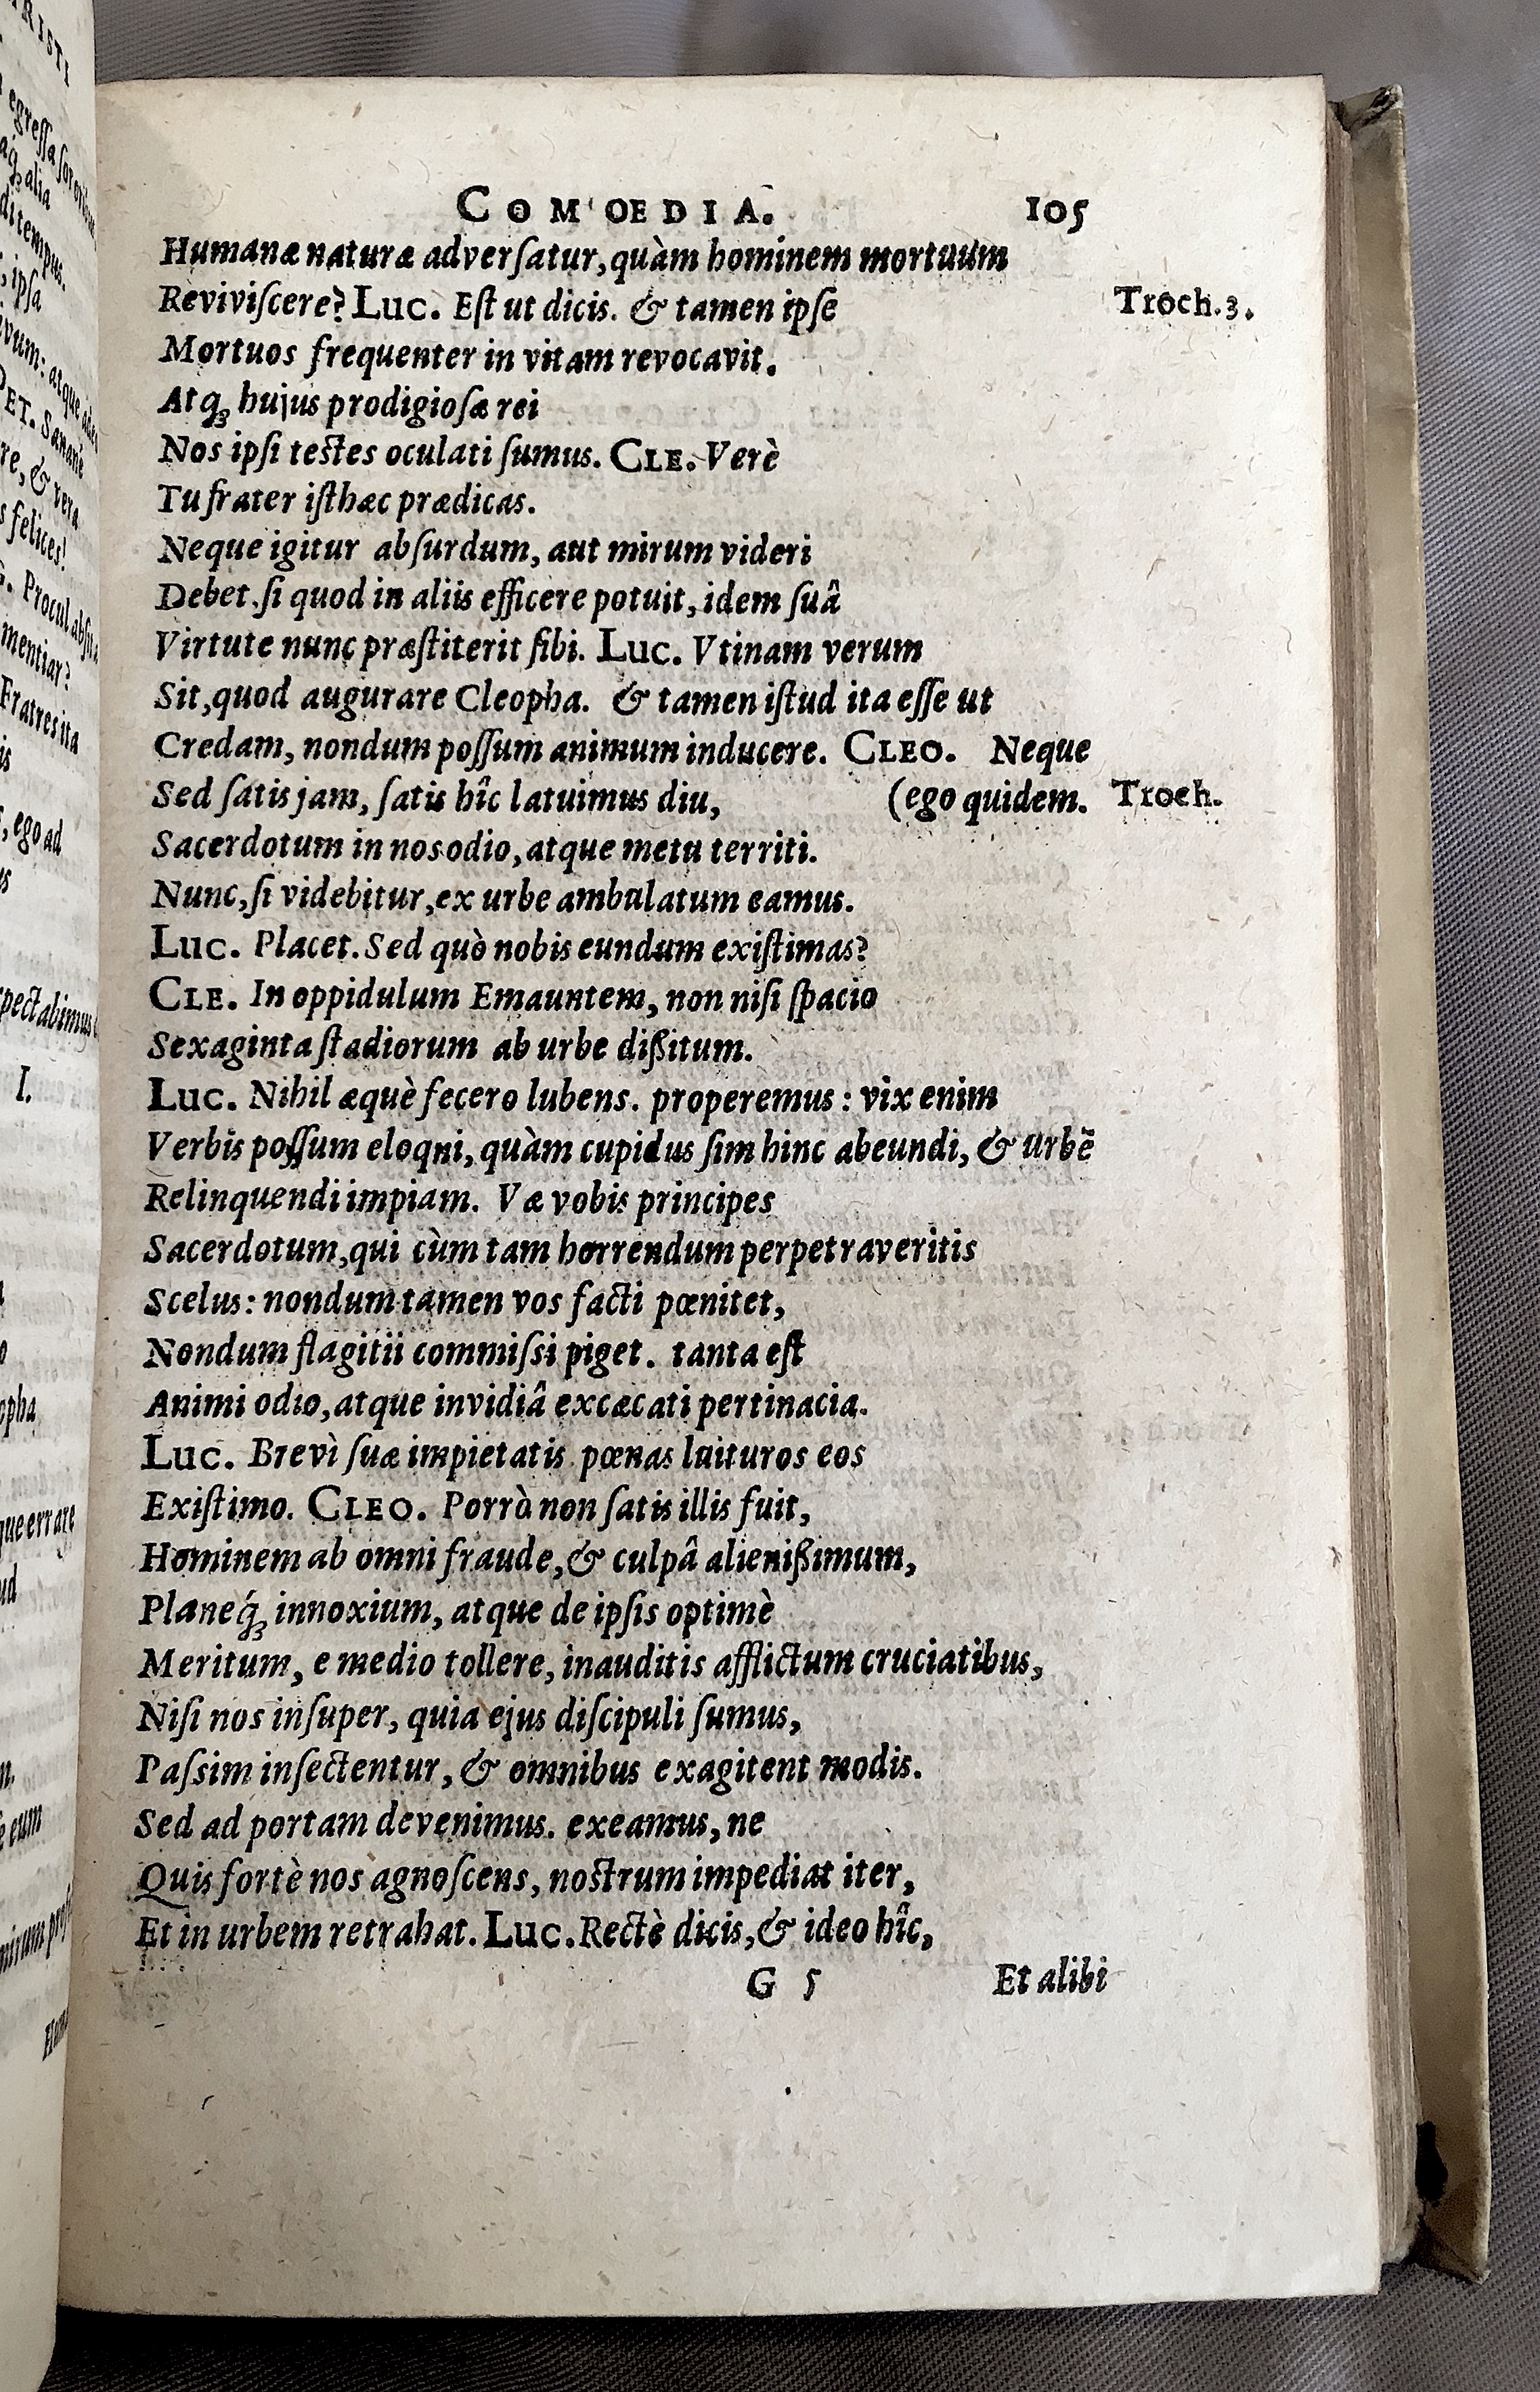 COMOEDIA. 105
Humanæ naturæ adverſatur, quàm hominem mortuum
Reviviſcere? Luc. Eſt ut dicis. & tamen ipſe Troch.3.
Mortuos frequenter in vitam revocavit.
Atq́ꝫ hujus prodigioſæ rei
Nos ipſi teſtes oculati ſumus. CLE. Verè
Tu frater iſthæc prædicas.
Neque igitur abſurdum, aut mirum videri
Debet. ſi quod in aliis efficere potuit, idem ſuâ
Virtute nunc præſtiterit ſibi. Luc. Vtinam verum
Sit, quod augurare Cleopha. & tamen iſtud ita eſſe ut
Credam, nondum poſſum animum inducere. CLEO. Neque
Sed ſatis jam, ſatis hîc latuimus diu, (ego quidem. Troch.
Sacerdotum in nos odio, atque metu territi.
Nunc, ſi videbitur, ex urbe ambulatum eamus.
Luc. Placet. Sed quò nobis eundum exiſtimas?
CLE. In oppidulum Emauntem, non niſi ſpacio
Sexaginta ſtadiorum ab urbe dißitum.
Luc. Nihil æquè fecero lubens. properemus: vix enim
Verbis poſſum eloqni, quàm cupidus ſim hinc abeundi, & urbē
Relinquendi impiam. Væ vobis principes
Sacerdotum, qui cùm tam horrendum perpetraveritis
Scelus: nondum tamen vos facti pœnitet,
Nondum flagitii commiſsi piget. tanta eſt
Animi odio, atque invidiâ excæcati pertinacia.
Luc. Brevì ſuæ impietatis pœnas luituros eos
Exiſtimo. CLEO. Porrò non ſatis illis fuit,
Hominem ab omni fraude, & culpâ alienißimum,
Planeq́ꝫ innoxium, atque de ipſis optimè
Meritum, e medio tollere, inauditis afflictum cruciatibus,
Niſi nos inſuper, quia ejus diſcipuli ſumus,
Paſsim inſectentur, & omnibus exagitent modis.
Sed ad portam devenimus. exeamus, ne
Quis fortè nos agnoſcens, noſtrum impediat iter,
Et in urbem retrahat. Luc. Rectè dicis, & ideo hîc,
G 5 Et alibi